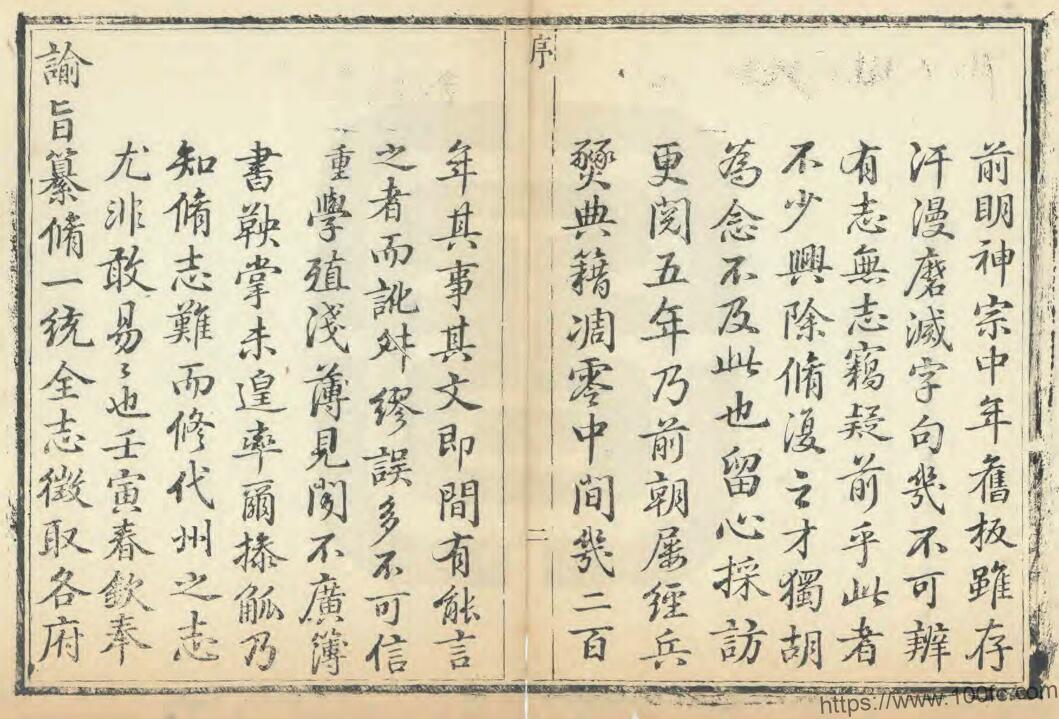 前明神宗中年舊板雖存
汗漫磨滅字句幾不可辨
有志無志竊疑前乎此者
不少興除脩復之才獨胡
為念不及此也留心採訪
更閱五年乃前朝屢經兵
燹典籍凋零中間幾二百
序
二
年其事其文即間有能言
之者而訛舛繆誤多不可信
重學殖淺薄見聞不廣簿
書鞅掌未遑率爾操觚乃
知脩志難而修代州之志
尤非敢易〻也壬寅春欽奉
諭旨纂脩一統全志徵取各府
https://www.100fc.com